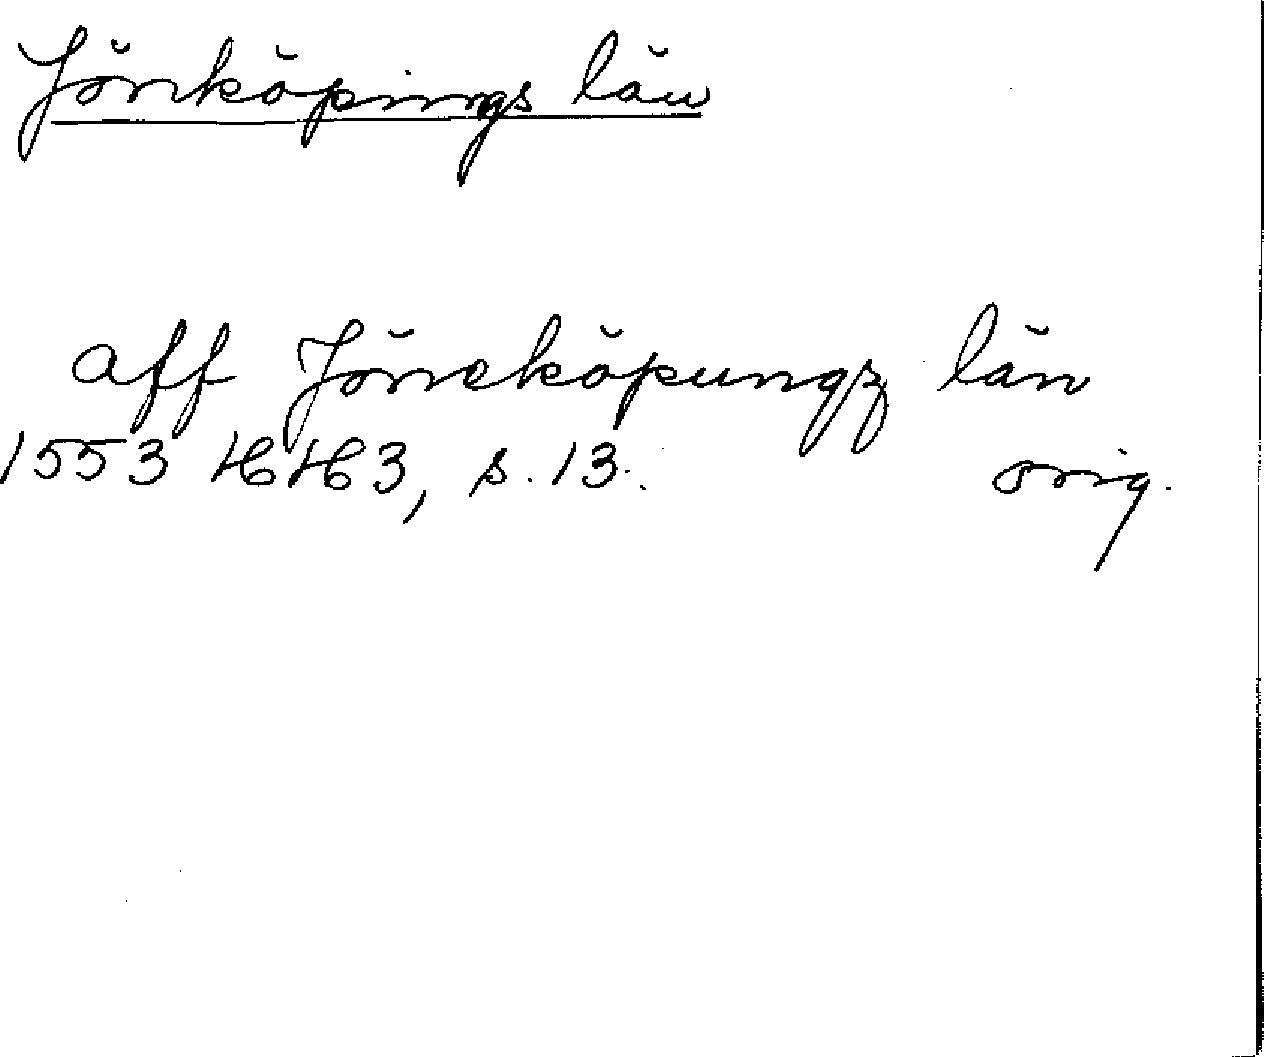 Jönköpings län
aff Jöneköpungz län
1553 HH3, s. 13. orig.